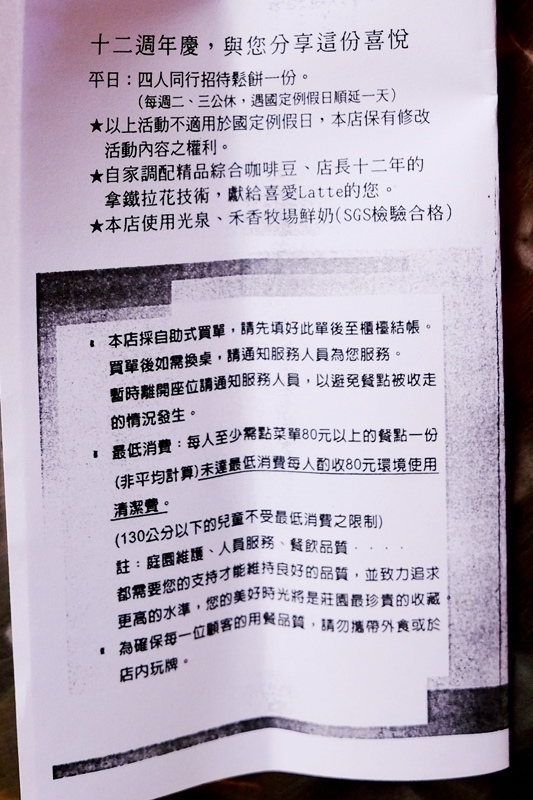 十二週年慶，與您分享這份喜悅
平日：四人同行招待鬆餅一份。
（每週二、三公休，遇國定例假日順延一天）
★以上活動不適用於國定例假日，本店保有修改
活動內容之權利。
★自家調配精品綜合咖啡豆、店長十二年的
拿鐵拉花技術，獻給喜愛Latte的您。
★本店使用光泉、禾香牧場鮮奶(SGS檢驗合格)
本店採自助式買單，請先填好此單後至櫃檯結帳。
買單後如需換桌，請通知服務人員為您服務。
暫時離開座位請通知服務人員，以避免餐點被收走
的情況發生。
最低消費：每人至少需點菜單80元以上的餐點一份
(非平均計算)未達最低消費每人酌收80元環境使用
清潔費。
(130公分以下的兒童不受最低消費之限制)
註：庭園維護、人員服務、餐飲品質‧‧‧‧
都需要您的支持才能維持良好的品質，並致力追求
更高的水準，您的美好時光將是莊園最珍貴的收藏。
為確保每一位顧客的用餐品質，請勿攜帶外食或於
店內玩牌。